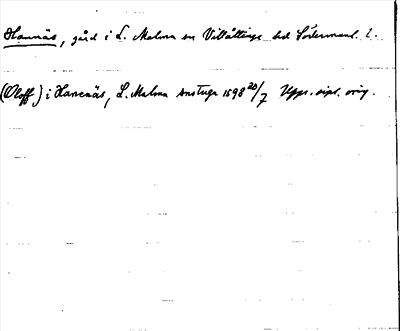 Hannäs, gård i L. Malma sn Villåttinge hd Södermanl. l.
(Oloff) i Hannäs, L. Malma snstuga 1598 20/7 Upps. dipl. orig.